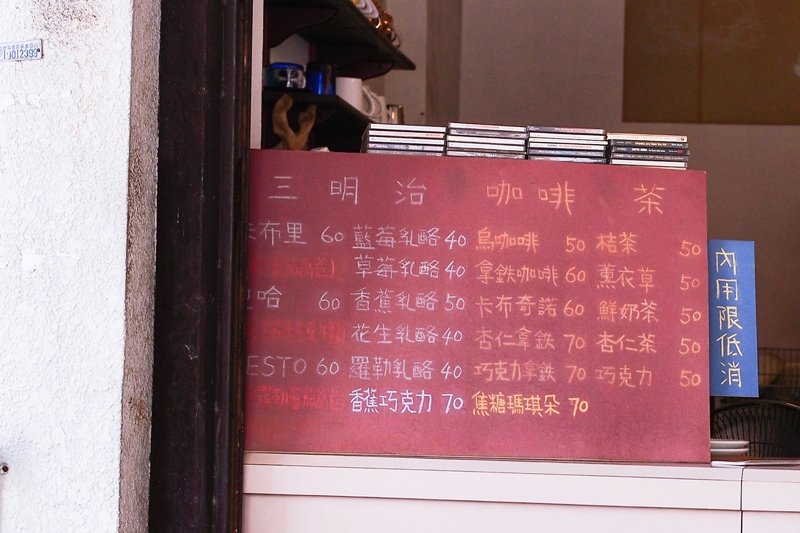 三明治 咖啡 茶
布里 60 藍莓乳酪 40 烏咖啡 50 桔茶 50
草莓乳酪 40 拿鉄咖啡 60 薰衣草 50
哈 60 香蕉乳酪 50 卡布奇諾 60 鮮奶茶 50
花生乳酪 40 杏仁拿鉄 70 杏仁茶 50
ESTO 60 羅勒乳酪 40 巧克力拿鉄 70 巧克力 50
香蕉巧克力 70 焦糖瑪琪朵 70
內用限低消